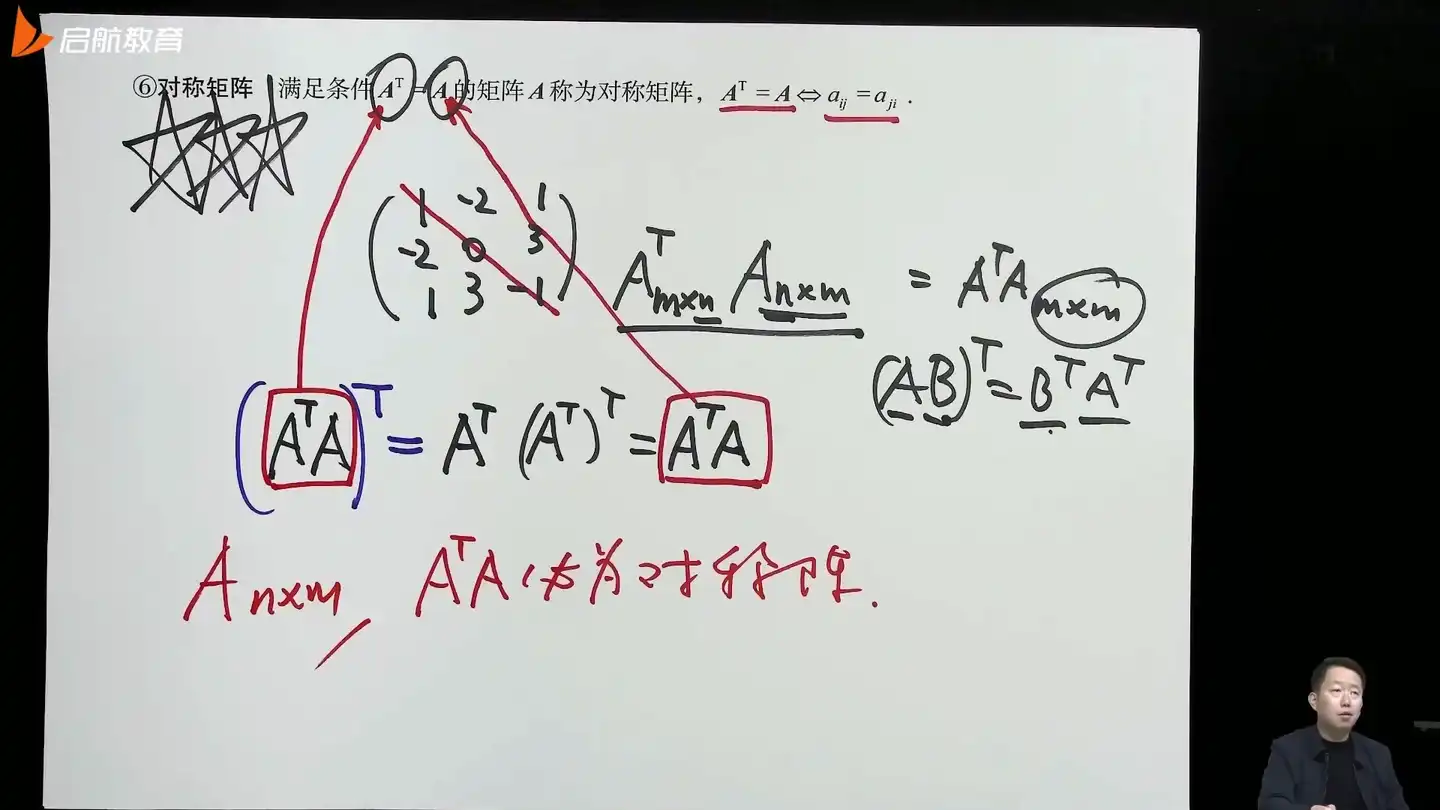 启航教育
⑥对称矩阵 满足条件 Aᵀ = A 的矩阵 A 称为对称矩阵，Aᵀ = A ⇔ aᵢⱼ = aⱼᵢ .
1 -2 1
-2 0 3
1 3 -1
Aᵀm×n An×m = AᵀA m×m
(AB)ᵀ = BᵀAᵀ
(AᵀA)ᵀ = Aᵀ(Aᵀ)ᵀ = AᵀA
An×m, AᵀA 必为对称阵.